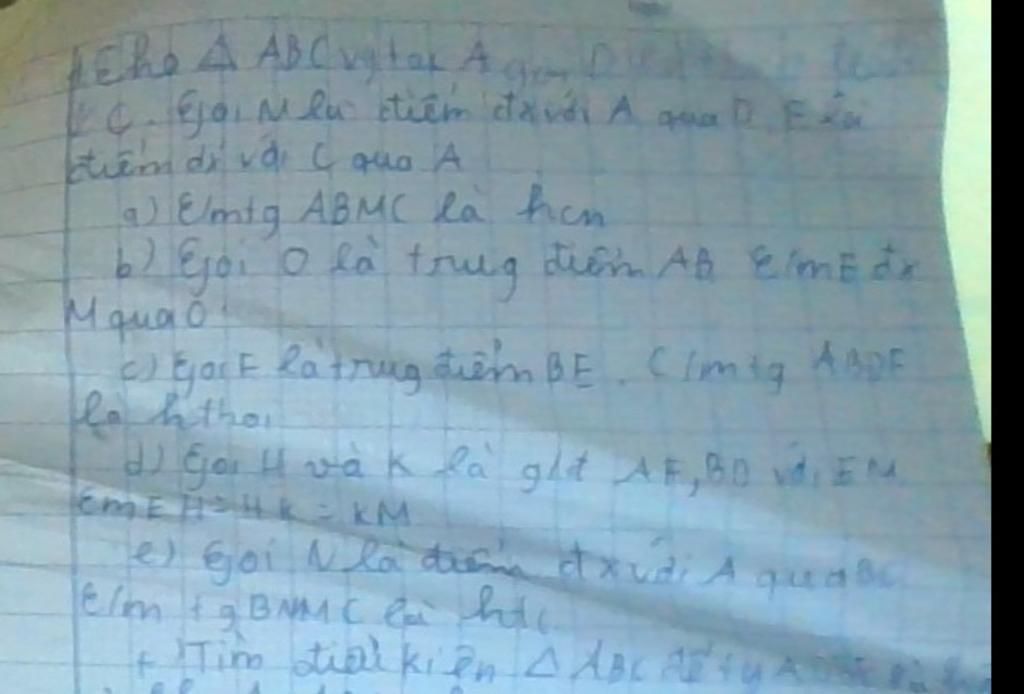 Cho Δ ABC vg tại A gọi D
BC. Gọi M là điểm đx với A qua D, E là
điểm đx với C qua A
a) C/m tg ABMC là hcn
b) Gọi O là trug điểm AB C/m E đx
M qua O
c) Gọi F là trug điểm BE. C/m tg ABDF
là h thoi
d) Gọi H và K là glđ AF, BD với EM
Cm EH = HK = KM
e) Gọi N là điểm đx với A qua BC
C/m tg BNMC là htc
f Tìm điều kiện Δ ABC để tg